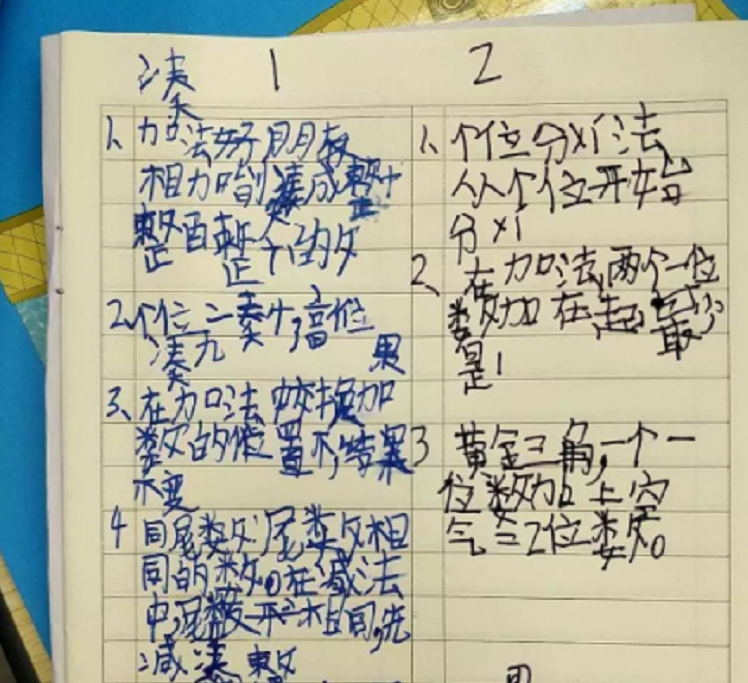 凑 1
1、加法好朋友
相加时凑成整十
整百整个的数
2、个位二凑十,高位
凑九 果
3、在加法中交换加
数的位置不,结果
不变
4 同尾数:尾数相
同的数。在减法
中,尾数不相同,先
减凑整数
2
1、个位分刈法
从个位开始
分刈
2、在加法,两个一位
数加在起,最少
是1
3 黄金三角,一个一
位数加上空
气=2位数。
果